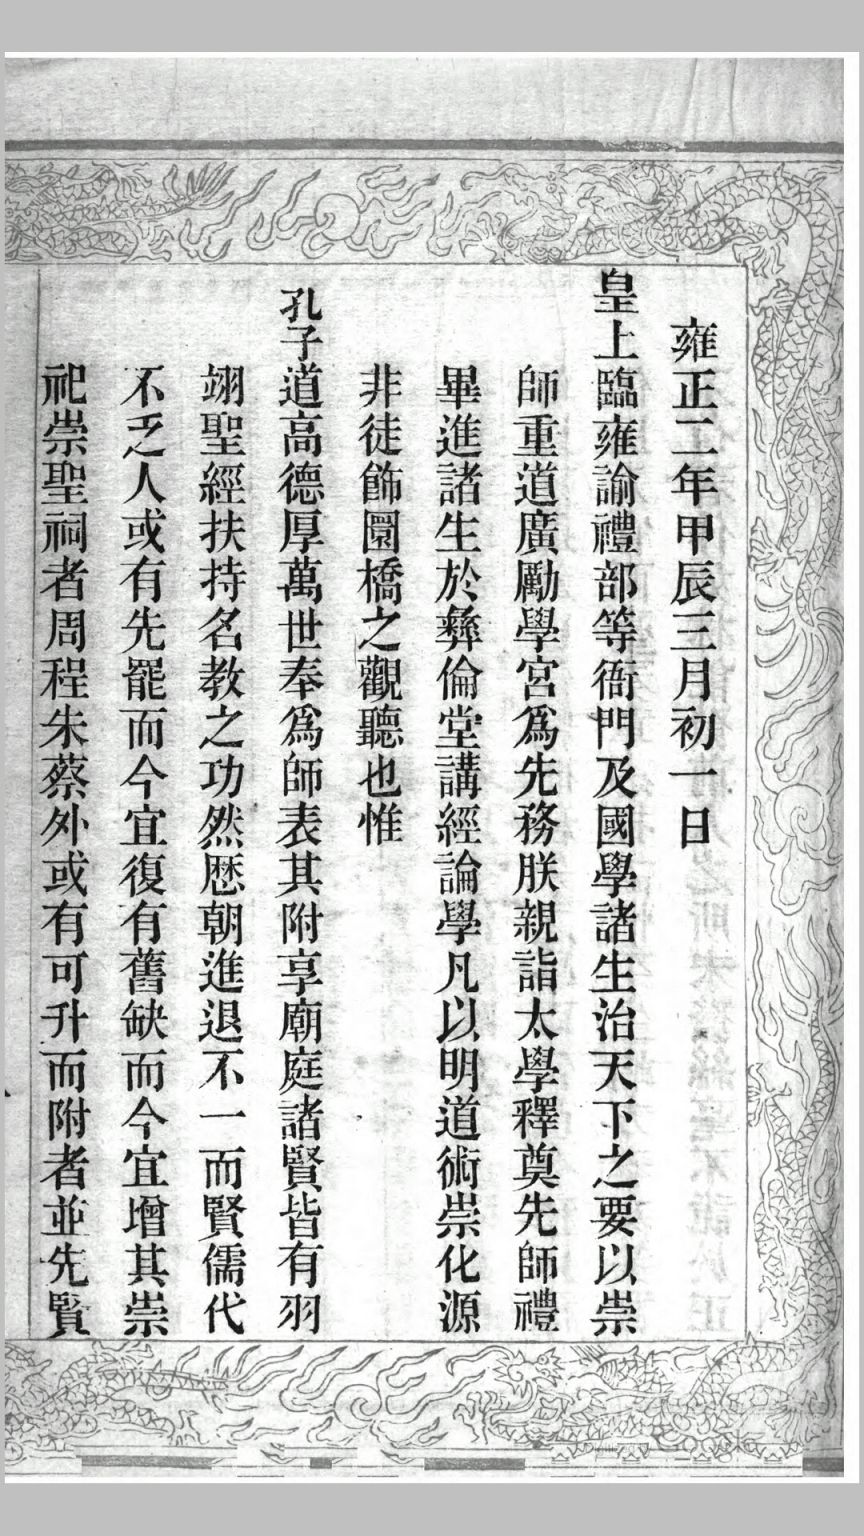 雍正二年甲辰三月初一日
皇上臨雍諭禮部等衙門及國學諸生治天下之要以崇
師重道廣勵學宮為先務朕親詣太學釋奠先師禮
畢進諸生於彝倫堂講經論學凡以明道術崇化源
非徒飾圜橋之觀聽也惟
孔子道高德厚萬世奉為師表其附享廟庭諸賢皆有羽
翊聖經扶持名教之功然歷朝進退不一而賢儒代
不乏人或有先罷而今宜復有舊缺而今宜增其崇
祀崇聖祠者周程朱蔡外或有可升而附者並先賢